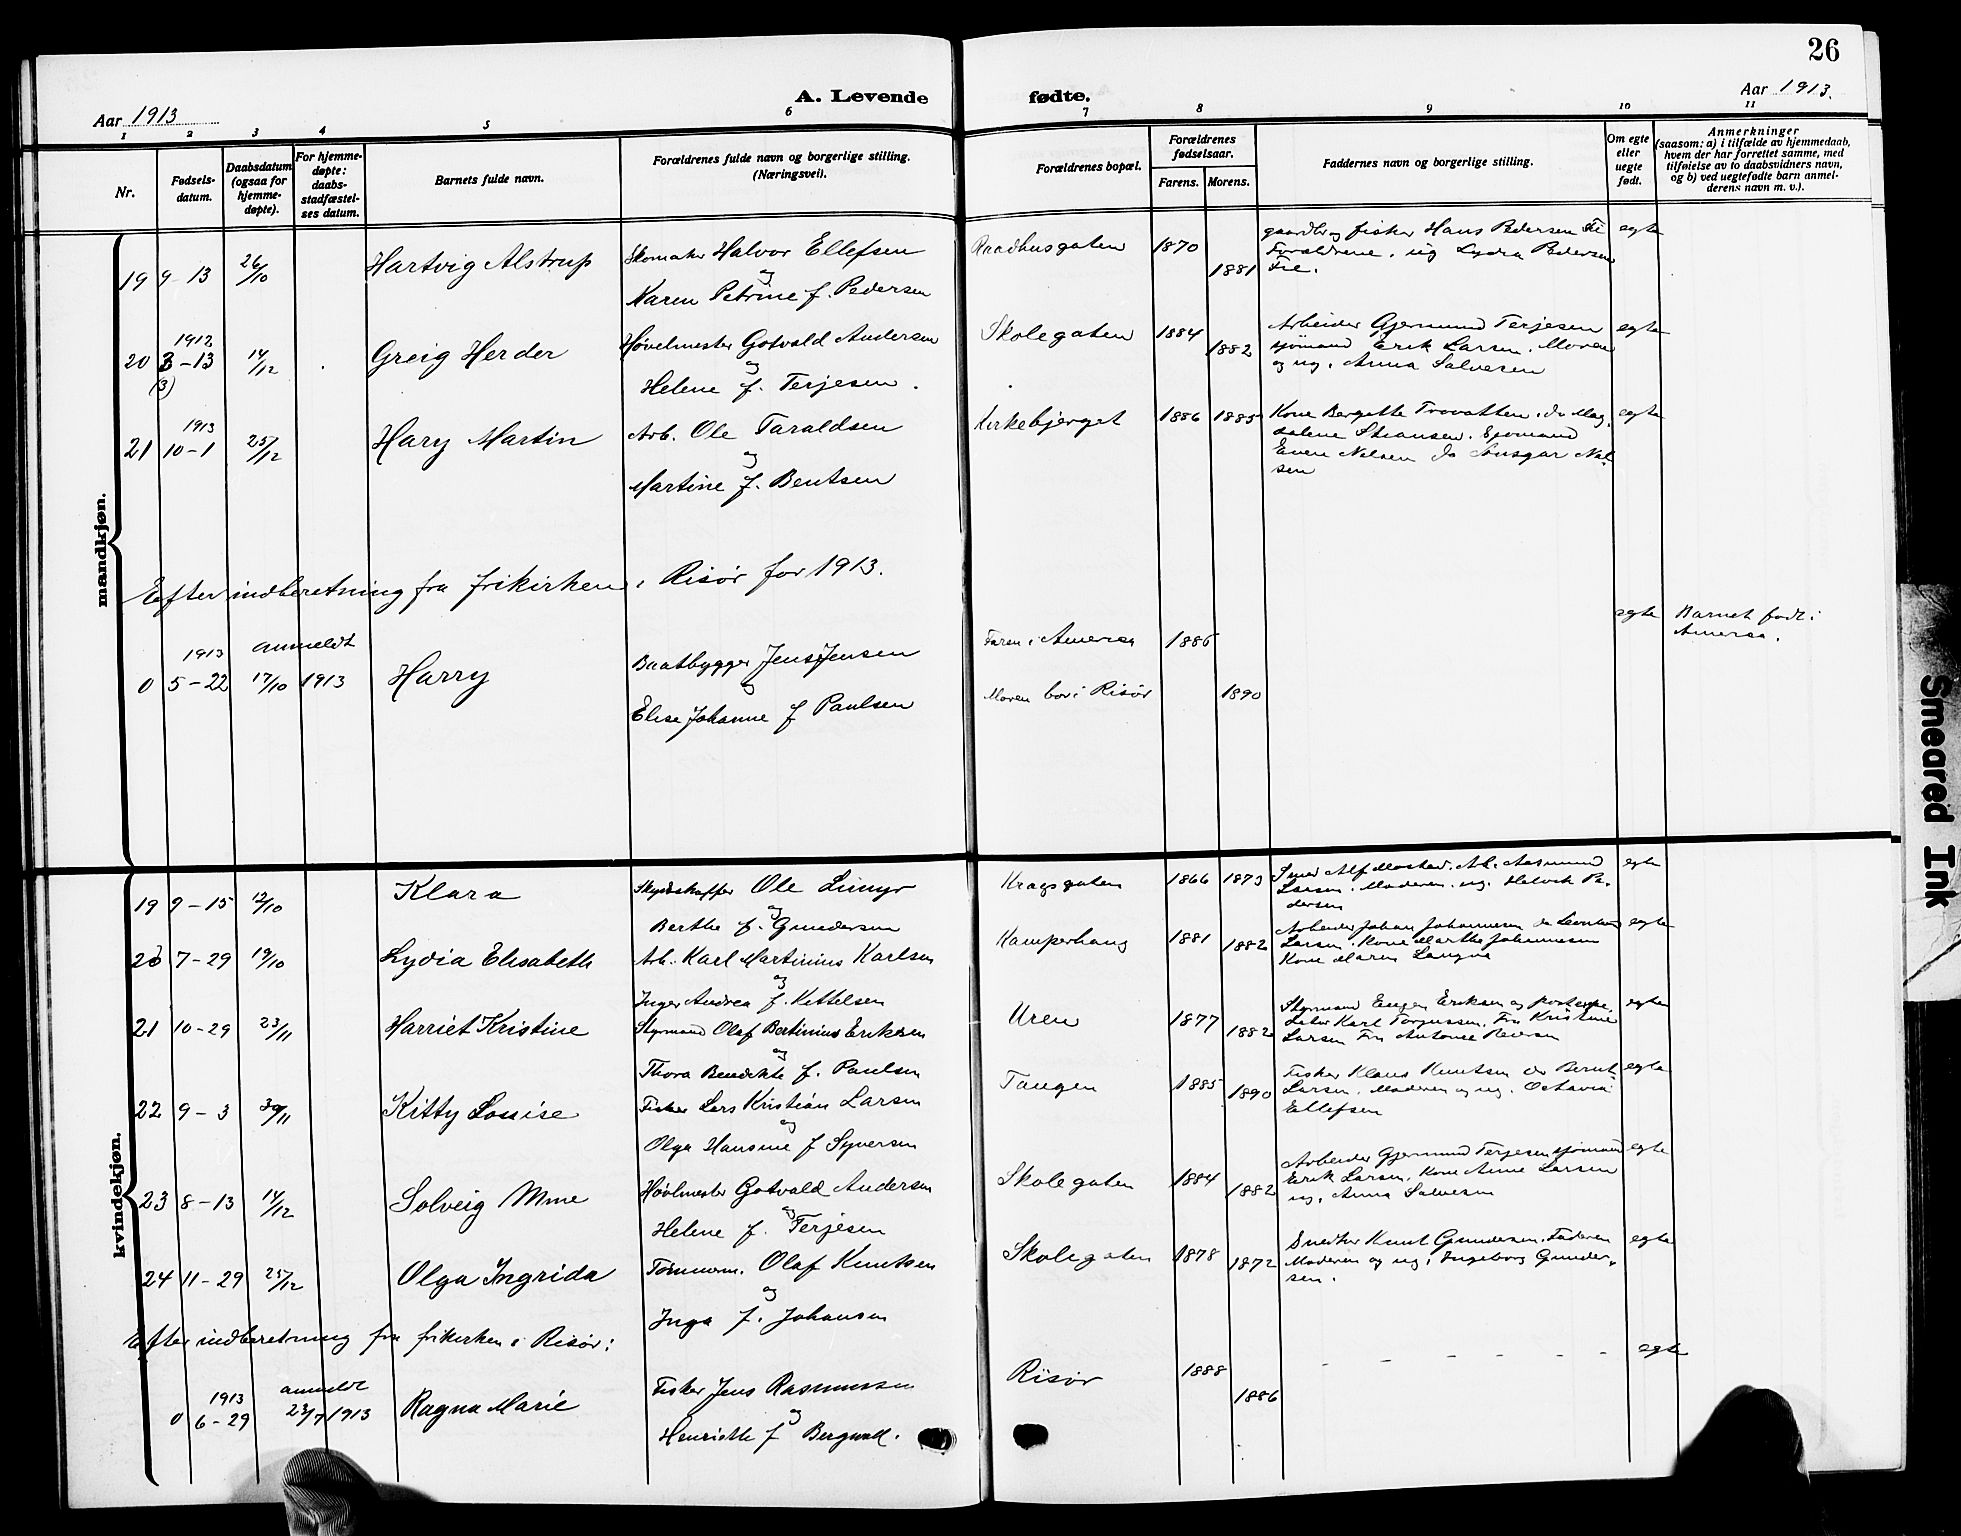 26
Aar 1913
A. Levende fødte.
Aar 1913.
1 2 3 4 5 6 7 8 9 10 11
Nr.
Fødsels-
datum.
Daabsdatum
(ogsaa for
hjemme-
døpte).
For hjemme-
døpte:
daabs-
stadfæstel-
ses datum.
Barnets fulde navn.
Forældrenes fulde navn og borgerlige stilling.
(Næringsvei).
Forældrenes bopæl.
Forældrenes
fødselsaar.
Farens. Morens.
Faddernes navn og borgerlige stilling.
Om egte
eller
uegte
født.
Anmerkninger
(saasom: a) i tilfælde av hjemmedaab,
hvem der har forrettet samme, med
tilføielse av to daabsvidners navn,
og b) ved uegtefødte barn anmel-
derens navn m. v.).
mandkjøn.
19 9-13 26/10 Hartvig Alstrup
Skomaker Halvor Ellefsen
og
Karen Petrine f. Pedersen
Raadhusgaten 1870 1881
gaardbr og fisker Hans Pedersen Fie
Forældrene. ug Lydia Pedersen
Fie.
egte
1912
20 8-13 14/12 Greig Herder
(3)
Høvelmester Gotvald Andersen
og
Helene f. Terjesen.
Skolegaten 1884 1882
Arbeider Gjermund Terjesen
sjömand Erik Larsen. Moren
og ug. Anna Salvesen
egte
1913
21 10-1 25/12 Hary Martin
Arb. Ole Taraldsen
og
Martine f. Bentsen
Kirkebjerget 1886 1885
Kone Bergette Trovatten. do Mag-
dalene Stiansen. Sjømand
Even Nilsen do Ansgar Nil-
sen
egte
Efter indberetning fra frikirken i Risør for 1913.
1913 anmeldt
0 5-22 17/10 1913 Harry
Baatbygger Jens Jensen
og
Elise Johanne f Paulsen
Faren i America 1886
Moren bor i Risör 1890
egte
Barnet født i
America.
kvindekjøn.
19 9-15 12/10 Klara
Skydsskaffer Ole Limyr
og
Berthe f. Gundersen
Kragsgaten 1866 1873
Smed Alf Mostad. Arb. Aasmund
Larsen. Moderen. ug. Helvik Pe-
dersen
egte
20 7-29 19/10 Lydia Elisabeth
Arb. Karl Martinius Karlsen
og
Inger Andrea f. Kittelsen
Kamperhaug 1881 1882
Arbeider Johan Johannesen do
Larsen. Kone Marthe Johannesen
Kone Maren
egte
21 10-29 23/11 Harriet Kristine
Styrmand Olaf Bertinius Eriksen
og
Thora Bendikte f. Paulsen
Uren 1877 1882
Styrmand Eugen Eriksen og postexpe-
ditør Karl Torgussen. Fru Kristine
Larsen Fru Antonie Reiersen
egte
22 9-3 30/11 Kitty Louise
Fisker Lars Kristian Larsen
og
Olga Hansine f Syversen
Tangen 1885 1890
Fisker Klaus Knutsen do Bernt
Larsen. Moderen og ug. Octavia
Ellefsen
egte
23 8-13 14/12 Solveig Mme
Høvlmester Gotvald Andersen
og
Helene f. Terjesen
Skolegaten 1884 1882
Arbeider Gjermund Terjesen sjømand
Erik Larsen. Kone Anne Larsen
ug. Anna Salvesen
egte
24 11-29 25/12 Olga Ingrida
Tømmerm. Olaf Knutsen
og
Inga f. Johansen
Skolegaten 1878 1872
Snedker Knut Gundersen. Faderen
Moderen og ug. Ingeborg Gunder-
sen.
egte
Efter indberetning fra frikirken i Risør:
1913 anmeldt
0 6-29 23/7 1913 Ragna Marie
Fisker Jens Rasmussen
og
Henriette f Bergvall.
Risør 1888 1886
- - - - - -
egte
Smeared Ink